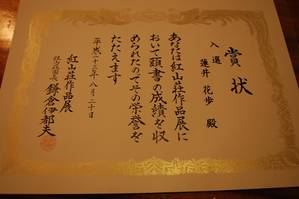 賞状
入選
蓮井 花歩 殿
あなたは紅山荘作品展に
おいて頭書の成績を収
められたのでその栄誉を
たたえます
平成二十三年八月二十日
紅山荘作品展
鎌倉伊都夫